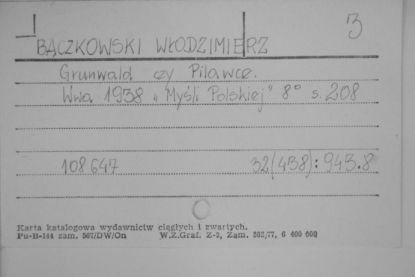 3
BĄCZKOWSKI WŁODZIMIERZ
Grunwald czy Pilawce.
Wwa 1938 „Myśli Polskiej" 8° s. 208
108 647 32(438):943.8
Karta katalogowa wydawnictw ciągłych i zwartych.
Pu-B-144 zam. 567/DW/On W.Z.Graf. Z-2, Zam. 502/77, 6 400 000